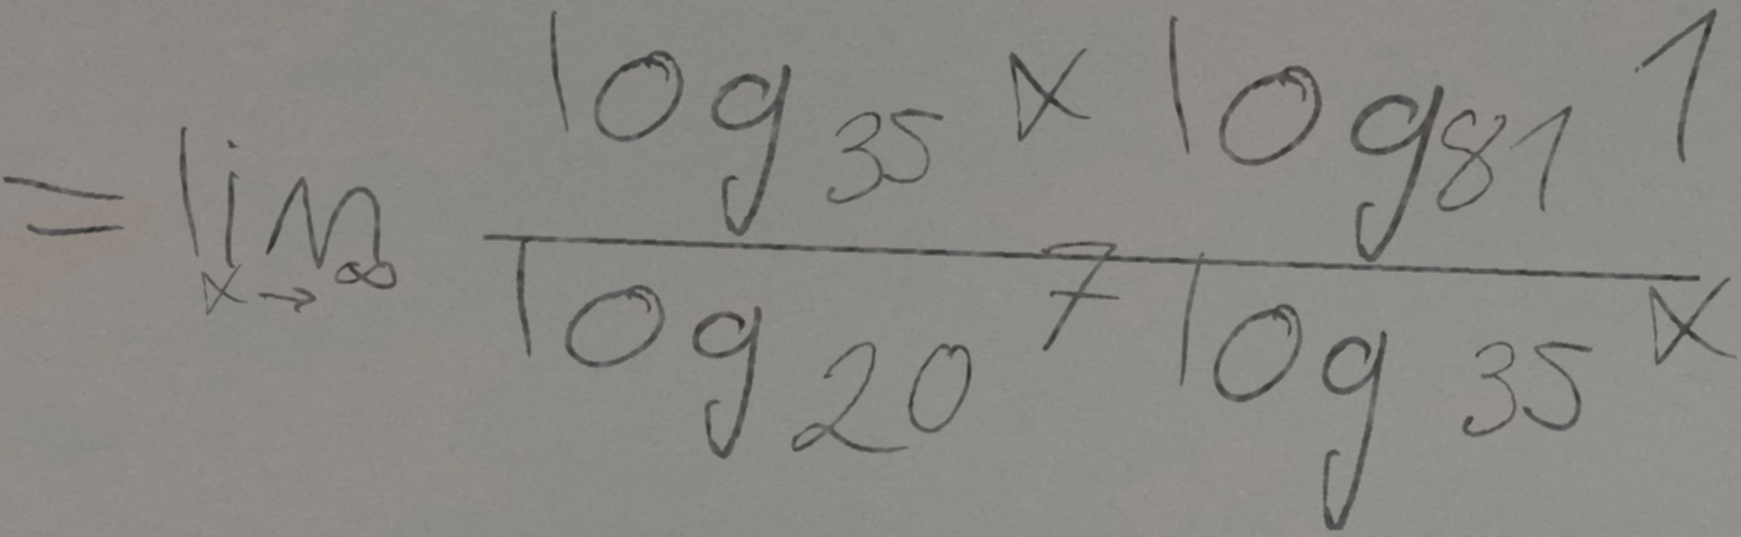 = \lim_{x \to \infty} \frac{\log_{35} x \log_{81} 1}{\log_{20} 7 \log_{35} x}